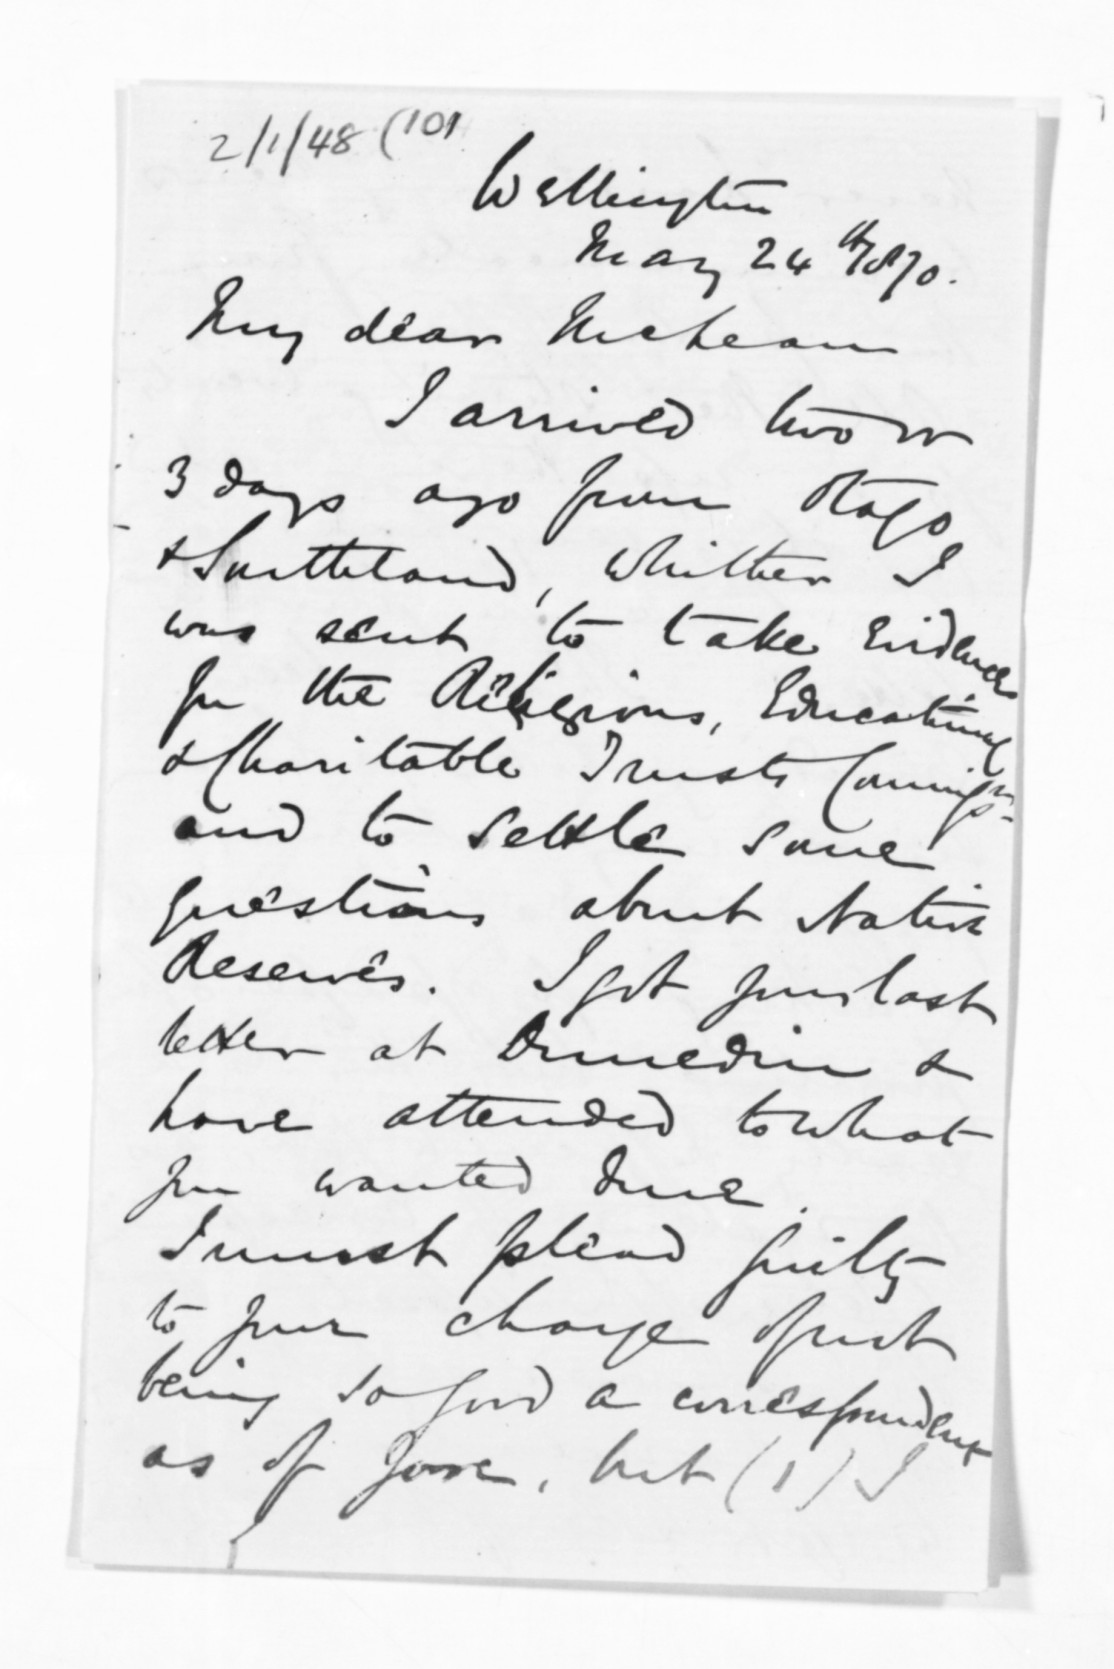 2/1/48 (101
Wellington
May 24th/870.
My dear McLean
I arrived two or
3 days ago from Otago
& Southland, whither I
was sent to take evidence
for the Religious, Educational
& Charitable Trusts Commissn
and to settle some
questions about Native
Reserves. I got your last
letter at Dunedin &
have attended to what
you wanted done.
I must plead guilty
to your charge of not
being so good a correspondent
as of yore, but (1) I